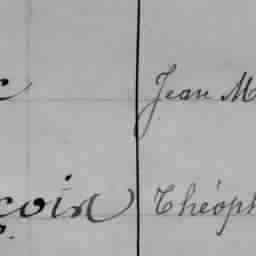 Jean M
çoin Théoph